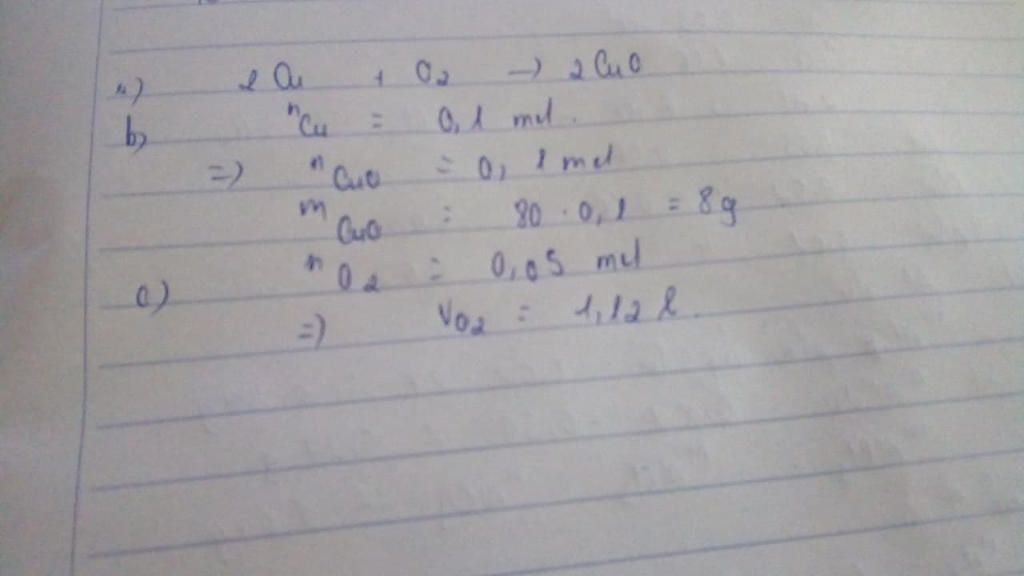 a) 2 Cu + O2 → 2 CuO
b) nCu = 0,1 mol.
=) nCuO = 0,1 mol
mCuO = 80 . 0,1 = 8g
c) nO2 = 0,05 mol
=) VO2 = 1,12 l.